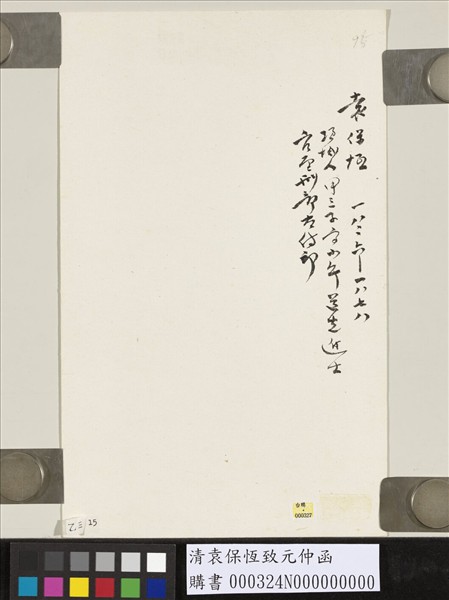 袁保恆 一八二六—一八七八
項城人 甲三子 字小午 道光進士
官至刑部左侍郎
25
000327
清袁保恆致元仲函
購書 000324N000000000